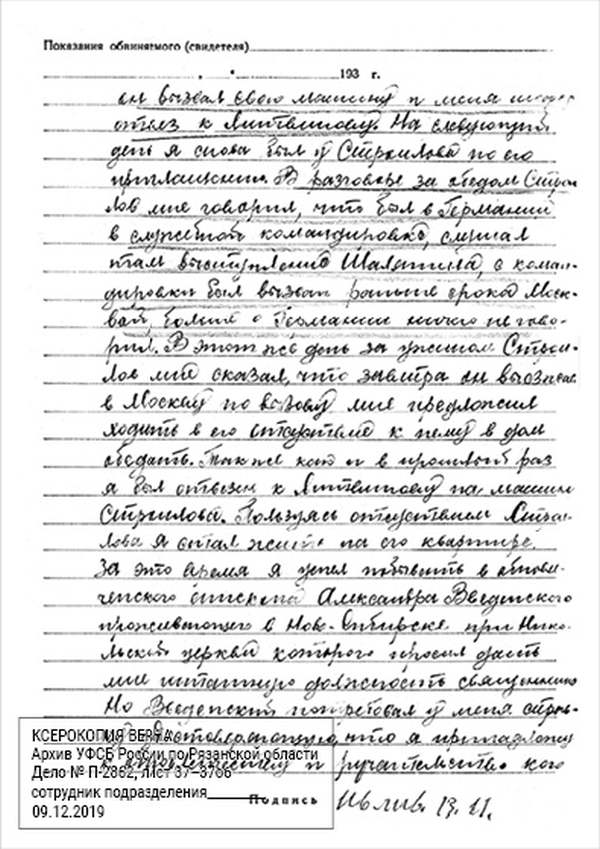 Показания обвиняемого (свидетеля)
„ “ 193 г.
он вызвал свою машину и меня
отвез к Литвинову. На следующий
день я снова был у Строилова по его
приглашению. В разговоре за обедом Строи-
лов мне говорил, что был в Германии
в служебной командировке, слушал
там выступление Шаляпина, с коман-
дировки был вызван раньше срока Моск-
вой, больше о Германии ничего не гово-
рил. В этот же день за ужином Строи-
лов мне сказал, что завтра он выезжает
в Москву по вызову мне предложил
ходить в его отсутствие к нему в дом
обедать. Так же как и в прошлый раз
я был отвезен к Литвинову на машине
Строилова. Пользуясь отсутствием Строи-
лова я стал жить на его квартире.
За это время я успел побывать у обнов-
ленческого епископа Александра Введенского
проживающего в Ново-Сибирске при Николь-
ской церкви которого просил дать
мне штатную должность священника
Но Введенский потребовал у меня
что я принадлежу
и ручательство кого
КСЕРОКОПИЯ ВЕРНА:
Архив УФСБ России по Рязанской области
Дело № П-2862, Лист 37–37об
сотрудник подразделения
09.12.2019
Подпись